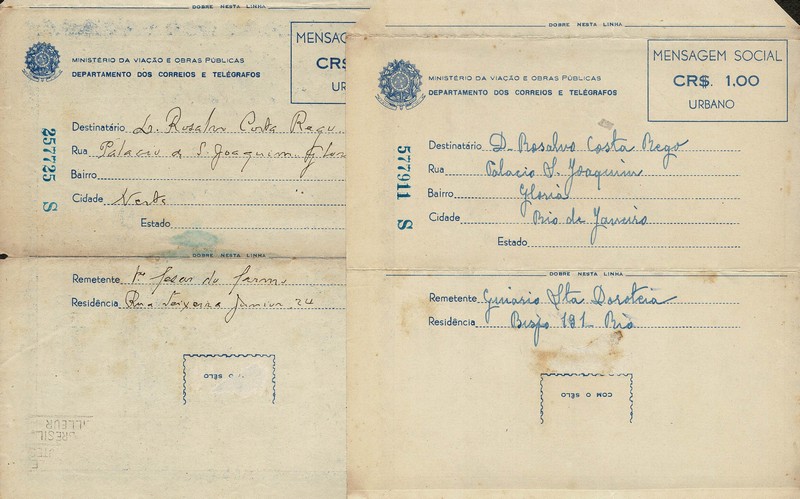 DOBRE NESTA LINHA
MENSAG
CR$
UR
MINISTÉRIO DA VIAÇÃO E OBRAS PÚBLICAS
DEPARTAMENTO DOS CORREIOS E TELÉGRAFOS
257725 S
Destinatário D. Rosalvo Costa Rego
Rua Palacio de S. Joaquim
Bairro
Cidade Nesta
Estado
DOBRE NESTA LINHA
Remetente
Residência Rua Teixeira Junior, 24
O SÊLO
BRESIL
DOBRE NESTA LINHA
MENSAGEM SOCIAL
CR$. 1,00
URBANO
MINISTÉRIO DA VIAÇÃO E OBRAS PÚBLICAS
DEPARTAMENTO DOS CORREIOS E TELÉGRAFOS
577911 S
Destinatário D. Rosalvo Costa Rego
Rua Palacio S. Joaquim
Bairro Gloria
Cidade Rio de Janeiro
Estado
DOBRE NESTA LINHA
Remetente Ginásio Sta Dorotéia
Residência Bispo 191 Rio
COM O SÊLO